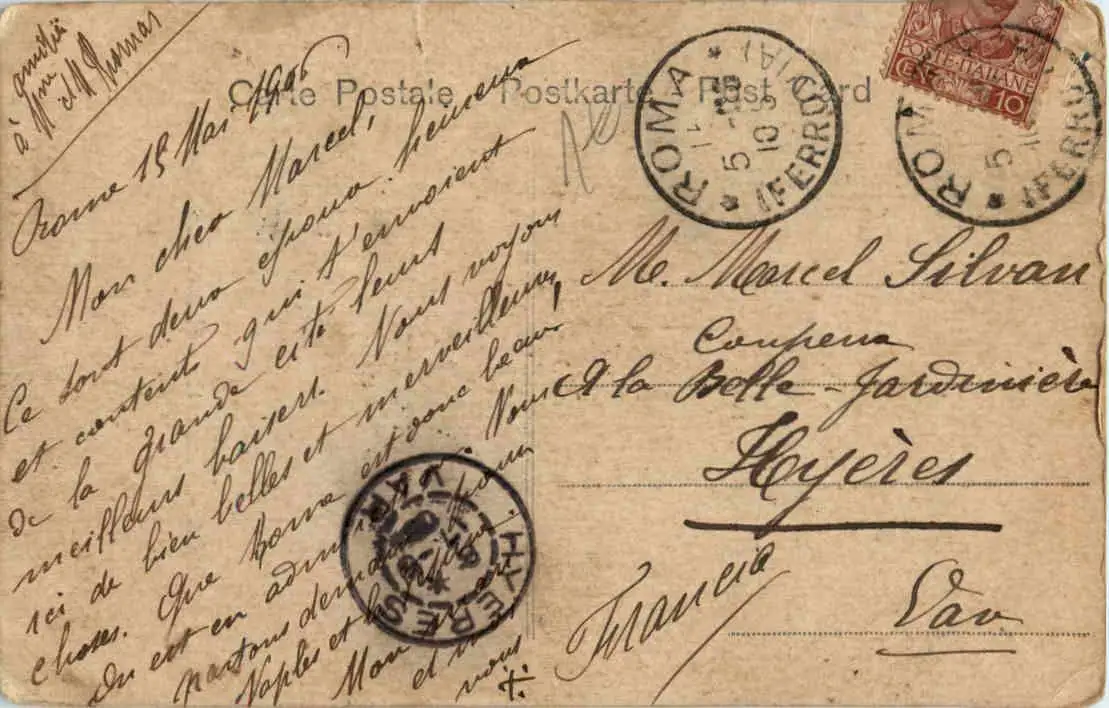 à
amitié
Mme et Mr Thomas
Carte Postale - Postkarte - Post Card
Rome 15 Mai 1906
Mon cher Marcel,
Ce sont deux époux heureux
et contents qui t'envoient
de la grande cité leurs
meilleurs baisers. Nous voyons
ici de bien belles et merveilleuses
choses. Que Rome est donc beau,
On est en admiration. Nous
partons demain pour
Naples et
Mon mari
et moi
vous
POSTE ITALIANE
CENT 10
ROMA
(FERROVIA)
ROMA
(FERROVIA)
M. Marcel Silvan
Coupeur
A la Belle-Jardinière
Hyères
Var
Francia
HYERES
VAR